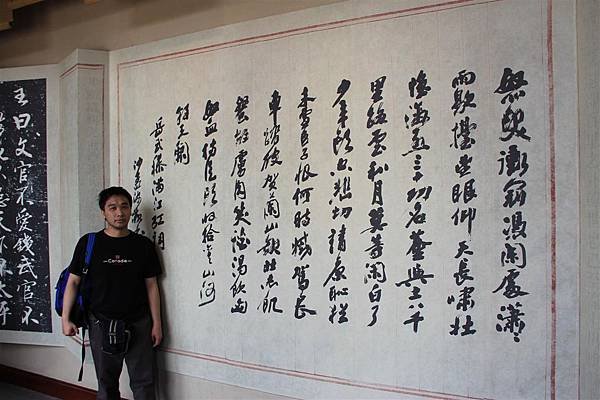 怒髮衝冠憑闌處瀟瀟
雨歇擡望眼仰天長嘯壯
懷激烈三十功名塵與土八千
里路雲和月莫等閒白了
少年頭空悲切靖康恥猶
未雪臣子恨何時滅駕長
車踏破賀蘭山缺壯志飢
餐胡虜肉笑談渴飲匈
奴血待從頭收拾舊山河
朝天闕
岳武穆滿江紅詞
沙孟海書
王曰文官不愛錢武官不